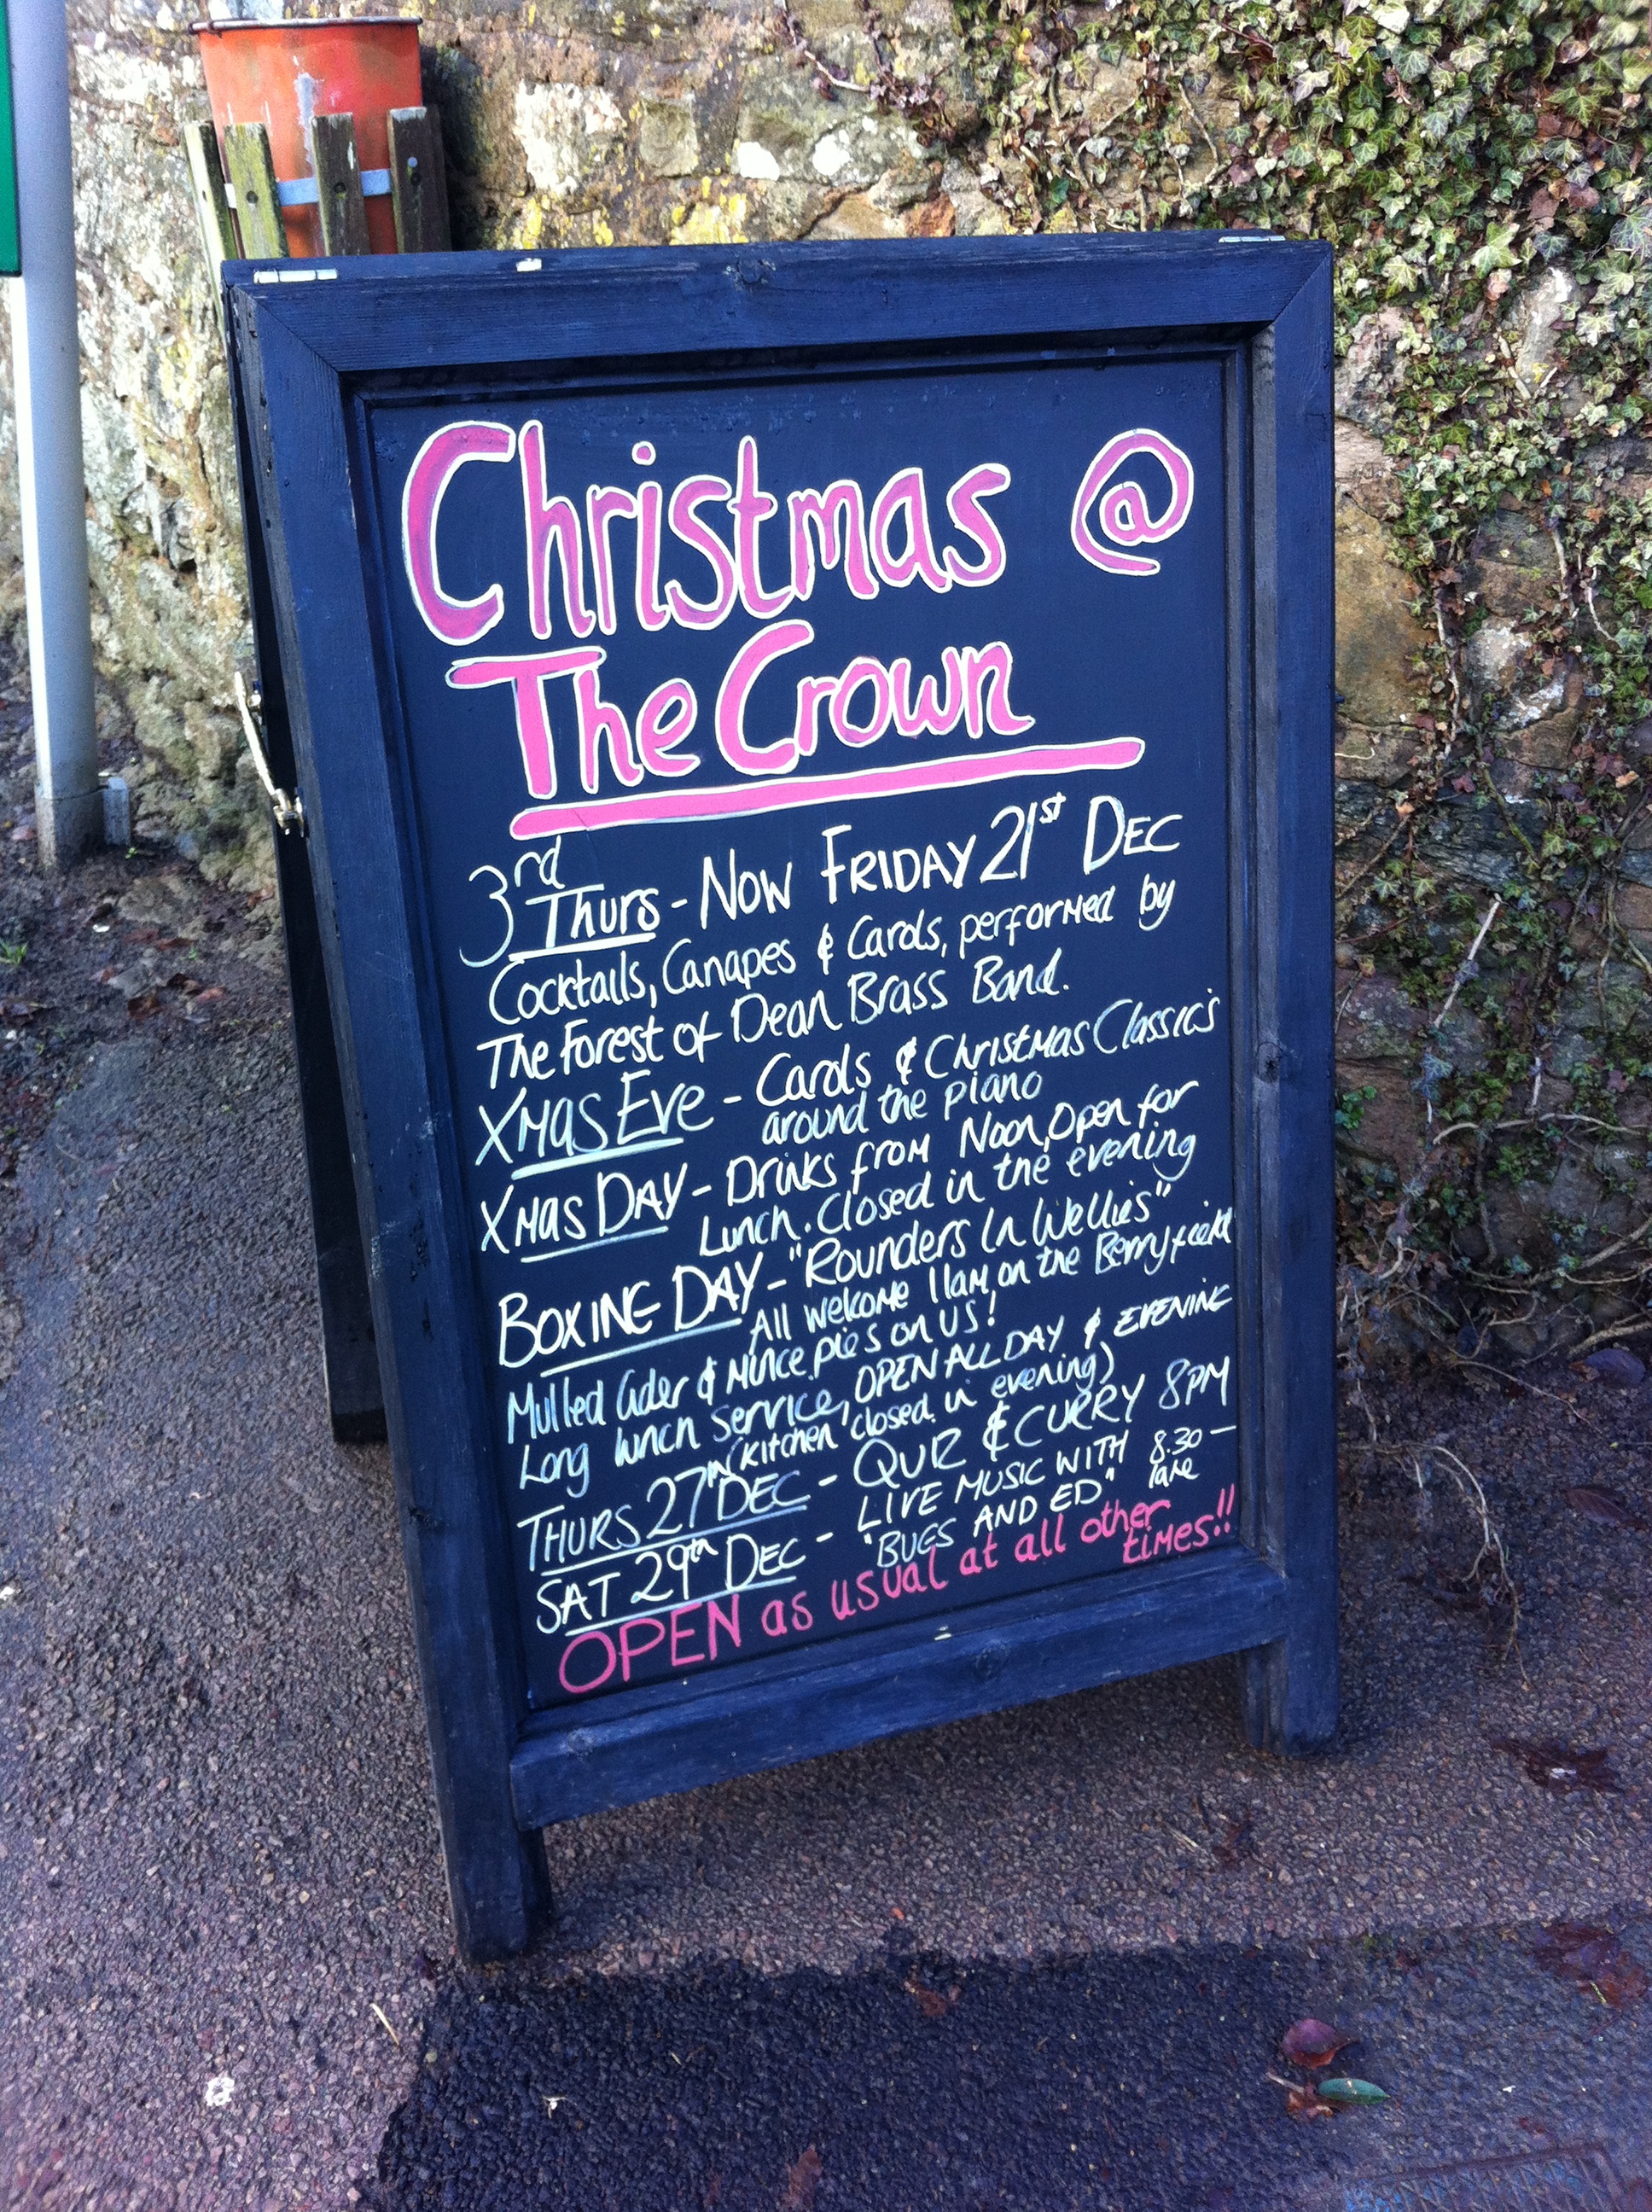 Christmas @
The Crown
3rd Thurs - Now FRIDAY 21st DEC
Cocktails, Canapes & Carols, performed by
The Forest of Dean Brass Band.
XMAS EVE - Carols & Christmas Classic's
around the piano
XMAS DAY - Drinks from Noon, Open for
Lunch. Closed in the evening
BOXING DAY - "Rounders In Wellies"
All welcome 11am, on the Berryfield
Mulled Cider & Mince pies on US!
Long lunch service, OPEN ALL DAY & EVENING
(kitchen closed in evening)
THURS 27th DEC - QUIZ & CURRY 8PM
SAT 29th DEC - LIVE MUSIC WITH 8.30 -
"BUGS AND ED" late
OPEN as usual at all other
times!!